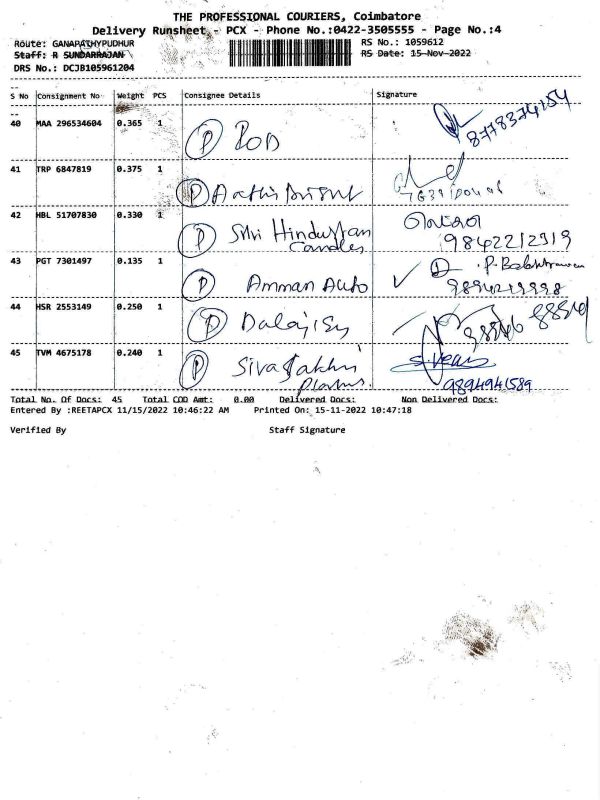 THE PROFESSIONAL COURIERS, Coimbatore
Delivery Runsheet - PCX - Phone No.:0422-3505555 - Page No.:4
Route: GANAPATHYPUDHUR RS No.: 1059612
Staff: R SUNDARRAJAN RS Date: 15-Nov-2022
DRS No.: DCJB105961204
S No Consignment No Weight PCS Consignee Details Signature
40 MAA 296534604 0.365 1 P POD 8778374154
41 TRP 6847819 0.375 1 P
42 HBL 51707830 0.330 1 P Shri Hindustan Candles 9842212919
43 PGT 7301497 0.135 1 P Amman Auto
44 HSR 2553149 0.250 1 P
45 TVM 4675178 0.240 1 P Siva Sakhi 9894941589
Total No. Of Docs: 45 Total COD Amt: 0.00 Delivered Docs: Non Delivered Docs:
Entered By :REETAPCX 11/15/2022 10:46:22 AM Printed On: 15-11-2022 10:47:18
Verified By Staff Signature